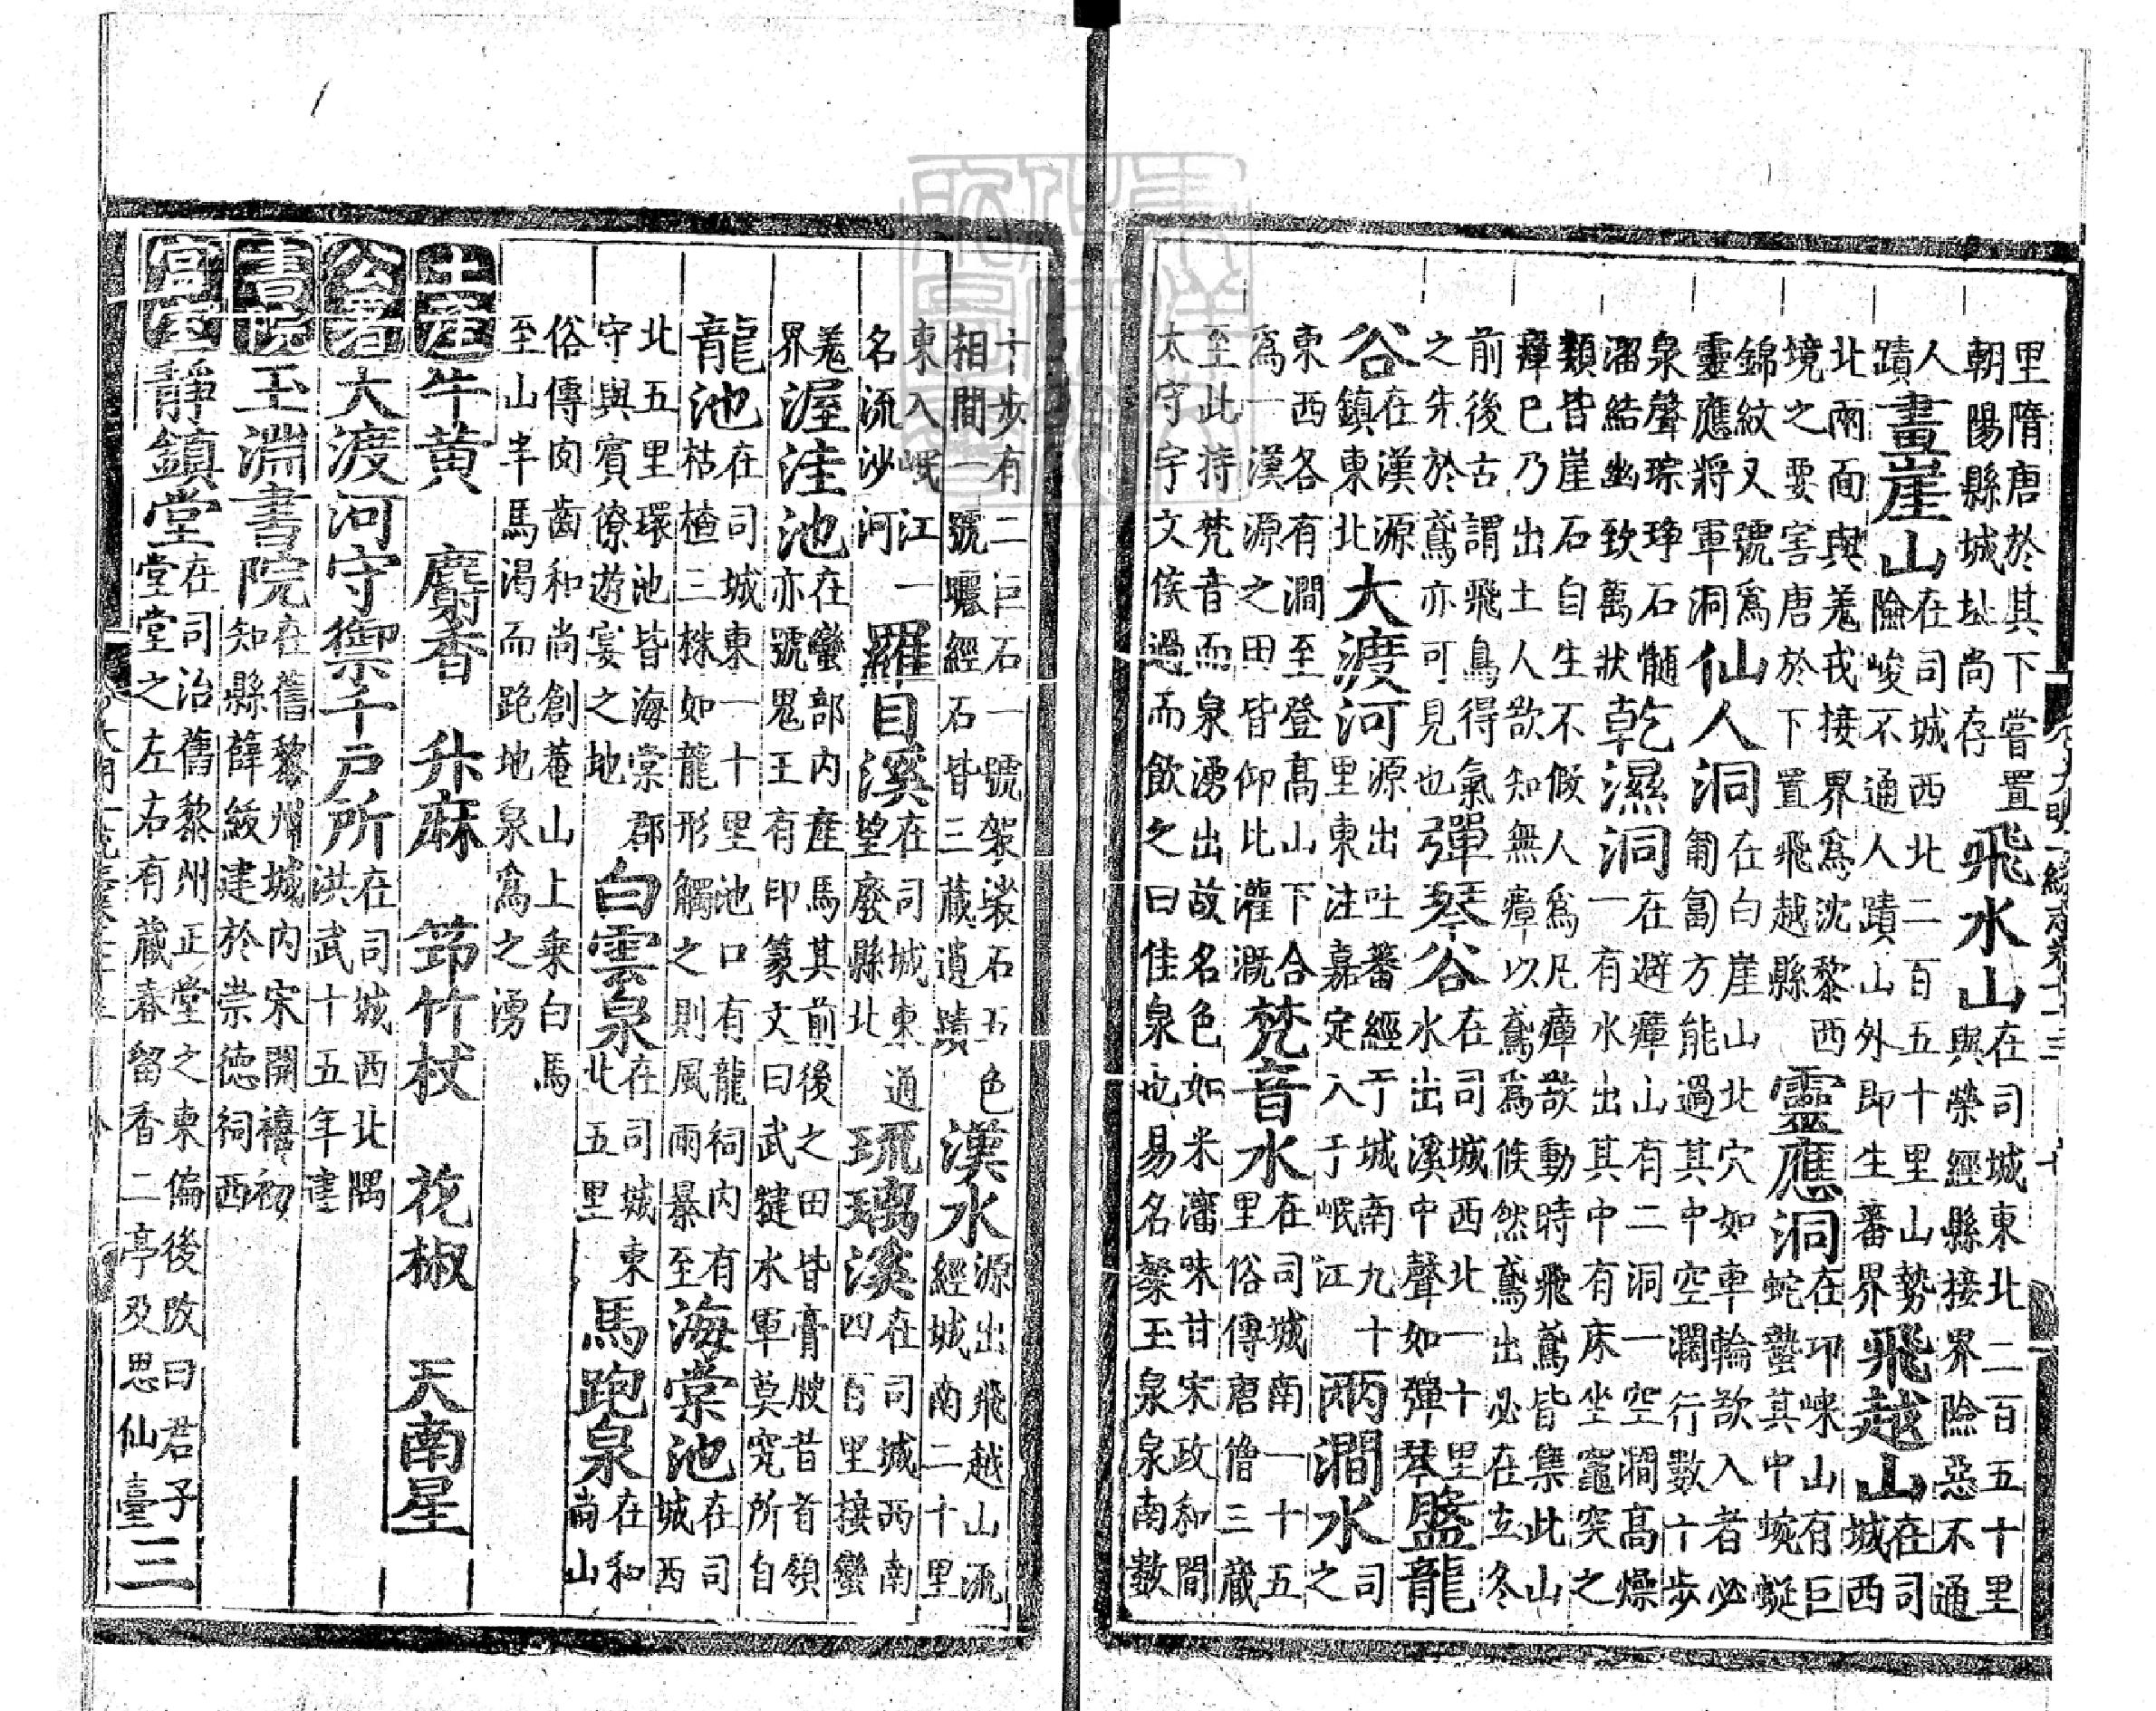 里隋唐於其下嘗置朝陽縣城址尚存飛水山在司城東北二百五十里與榮經縣接界險惡不通
人蹟畫崖山在司城西北二百五十里山勢險峻不通人蹟山外即生蕃界飛越山在司城西
北兩面與羗戎接界爲沈黎西境之要害唐於下置飛越縣靈應洞在邛崍山有巨蛇蟄其中蜿蜒
錦紋又號爲靈應將軍洞仙人洞在白崖山北穴如車輪欲入者必匍匐方能過其中空濶行數十步
泉聲琮琤石髓溜結幽致萬狀乾濕洞在避瘴山有二洞一空澗高燥一有水出其中有床坐竈突之
類皆崖石自生不假人爲凡瘴欲動時飛鳶皆集此山瘴巳乃出土人欲知無瘴以鳶爲候然鳶出必在立冬
前後古謂飛鳥得氣之先於鳶亦可見也彈琴谷在司城西北一十里水出溪中聲如彈琴盤龍
谷在漢源鎮東北大渡河源出吐蕃經于城南九十里東注嘉定入于岷江兩澗水司之
東西各有澗至登高山下合爲一漢源之田皆仰比灌溉梵音水在司城南一十五里俗傳唐僧三藏
至此持梵音而泉湧出故名色如米瀋味甘宋政和間太守宇文侯過而飲之曰佳泉也易名粲玉泉泉南數
十步有二巨石一號袈裟石五色相間一號曬經石皆三藏遺蹟漢水源出飛越山流經城南二十里
東入岷江一名流沙河羅目溪在司城東通望廢縣北琉璃溪在司城西南四百里接蠻
羗界渥洼池在蠻部内産馬其前後之田皆膏腴昔首領亦號鬼王有印篆文曰武犍水軍莫究所自
龍池在司城東一十里池口有龍祠内有枯楂三株如龍形觸之則風雨暴至海棠池在司城西
北五里環池皆海棠郡守與賓僚遊宴之地白雲泉在司城東北五里馬跑泉在和尚山
俗傳囱齒和尚創菴山上乘白馬至山半馬渴而跑地泉爲之湧
土産牛黄 麝香 升麻 筇竹杖 花椒 天南星
公署大渡河守禦千戶所在司城西北隅洪武十五年建
書院玉淵書院在舊黎州城内宋開禧初知縣薛紱建於崇德祠西
宮室靜鎮堂在司治舊黎州正堂之東偏後改曰君子堂堂之左右有藏春留香二亭及思仙臺三